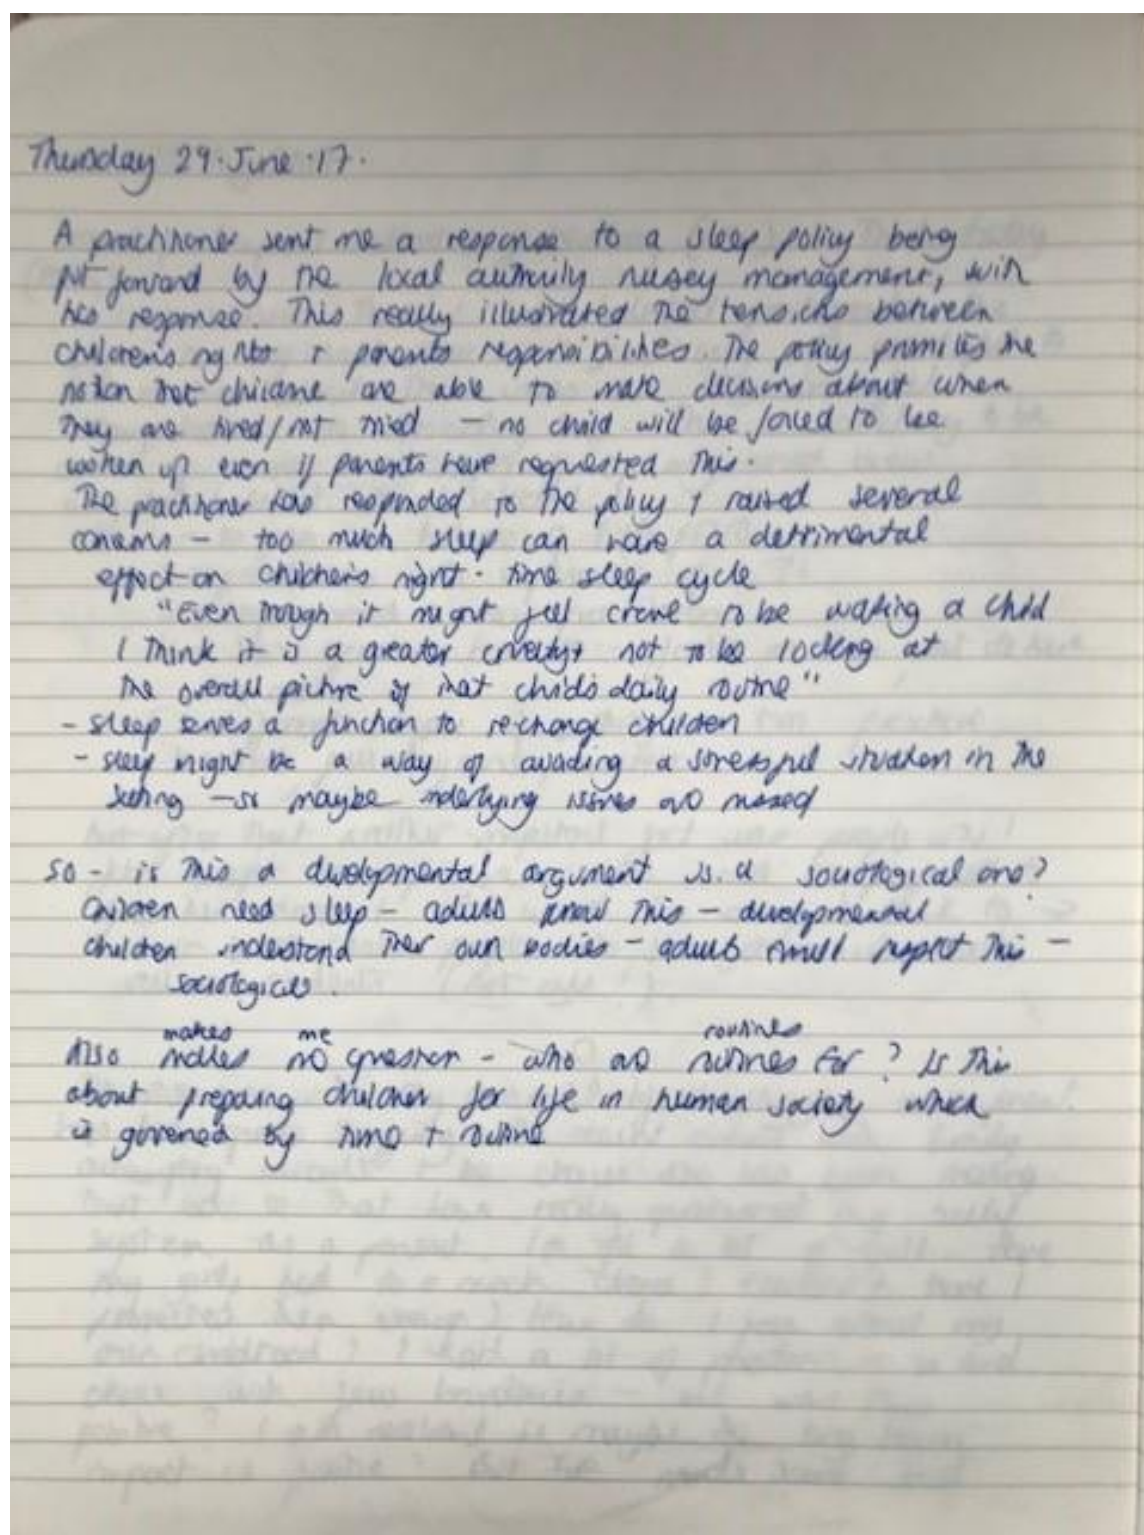 Thursday 29. June. 17.
A practitioner sent me a response to a sleep policy being
put forward by the local authority nursery management, with
her response. This really illustrated the tensions between
children's rights + parents responsibilities. The policy promotes the
notion that children are able to make decisions about when
they are tired/not tired – no child will be forced to be
woken up even if parents have requested this.
The practitioner has responded to the policy + raised several
concerns – too much sleep can have a detrimental
effect on children's night-time sleep cycle
"Even though it might feel cruel to be waking a child
I think it is a greater cruelty not to be looking at
the overall picture of that child's daily routine"
- sleep serves a function to re-charge children
- sleep might be a way of avoiding a stressful situation in the
setting – so maybe underlying issues are missed
SO - is this a developmental argument vs. a sociological one?
Children need sleep – adults know this – developmental
children understand their own bodies – adults must respect this –
sociological.
makes me routines
Also makes me question – who are routines for? Is this
about preparing children for life in human society which
is governed by time + routine